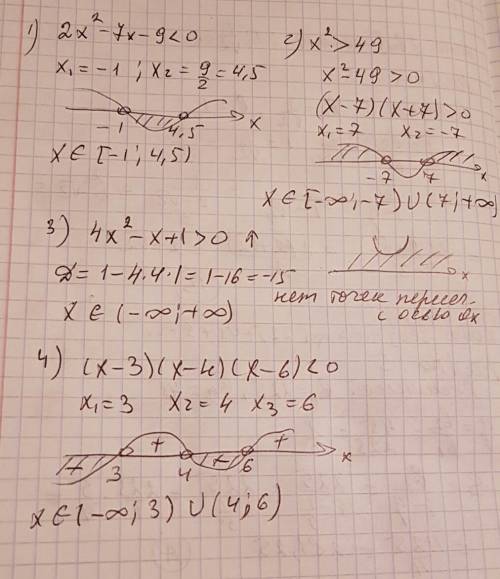 1) 2x² - 7x - 9 < 0
x₁ = -1 ; x₂ = 9/2 = 4,5
-1 4,5 x
x ∈ [-1 ; 4,5)
2) x² > 49
x² - 49 > 0
(x-7)(x+7) > 0
x₁ = 7 x₂ = -7
-7 7 x
x ∈ [-∞; -7) ∪ (7; +∞)
3) 4x² - x + 1 > 0 ↑
D = 1 - 4·4·1 = 1 - 16 = -15
x ∈ (-∞; +∞)
x
нет точек пересеч.
с осью Ox
4) (x-3)(x-4)(x-6) < 0
x₁ = 3 x₂ = 4 x₃ = 6
+ +
3 4 6 x
x ∈ (-∞; 3) ∪ (4; 6)